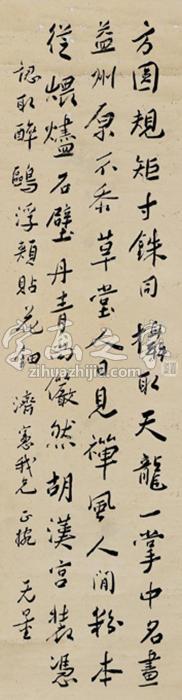 方圓規矩寸銖同攝取天龍一掌中名畫
益州原不忝草堂人日見禪風人間粉本
從煨燼石壁丹青儼然胡漢宮裝憑
認取醉鷗浮頰貼花鈿濟憲我兄正腕无量
字画之家
zihuazhijia.com